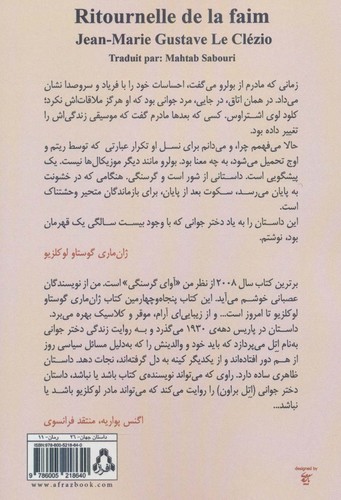 Ritournelle de la faim
Jean-Marie Gustave Le Clézio
Traduit par: Mahtab Sabouri
زمانی که مادرم از بولرو می‌گفت، احساسات خود را با فریاد و سروصدا نشان
می‌داد. در همان اتاق، در جایی، مرد جوانی بود که او هرگز ملاقات‌اش نکرد؛
کلود لوی اشتراوس. کسی که بعدها مادرم گفت که موسیقی زندگی‌اش را
تغییر داده بود.
حالا می‌فهمم چرا، و می‌دانم برای نسل او تکرار عبارتی که توسط ریتم و
اوج تحمیل می‌شود، به چه معنا بود. بولرو مانند دیگر موزیکال‌ها نیست. یک
پیشگویی است. داستانی از شور است و گرسنگی. هنگامی که در خشونت
به پایان می‌رسد، سکوت بعد از پایان، برای بازماندگان متحیر وحشتناک
است.
این داستان را به یاد دختر جوانی که با وجود بیست سالگی یک قهرمان
بود، نوشتم.
ژان‌ماری گوستاو لوکلزیو
برترین کتاب سال ۲۰۰۸ از نظر من «آوای گرسنگی» است. من از نویسندگان
عصبانی خوشم می‌آید. این کتاب پنجاه‌وچهارمین کتاب ژان‌ماری گوستاو
لوکلزیو تا امروز است... و از زیبایی‌ای آرام، موقر و کلاسیک بهره می‌برد.
داستان در پاریس دهه‌ی ۱۹۳۰ می‌گذرد و به روایت زندگی دختر جوانی
به‌نام اِتل می‌پردازد که باید خود و والدینش را که به‌دلیل مسائل سیاسی روز
از هم دور افتاده‌اند و از یکدیگر کینه به دل گرفته‌اند، نجات دهد. داستان
ظاهری ساده دارد. راوی که می‌تواند نویسنده‌ی کتاب باشد یا نباشد، داستان
دختر جوانی (اِتل براون) را روایت می‌کند که می‌تواند مادر لوکلزیو باشد یا
نباشد...
اگنس پواریه، منتقد فرانسوی
داستان جهان-۲۱ رمان-۱۱
ISBN 978-600-5218-64-0
9 786005 218640
www.afrazbook.com
designed by